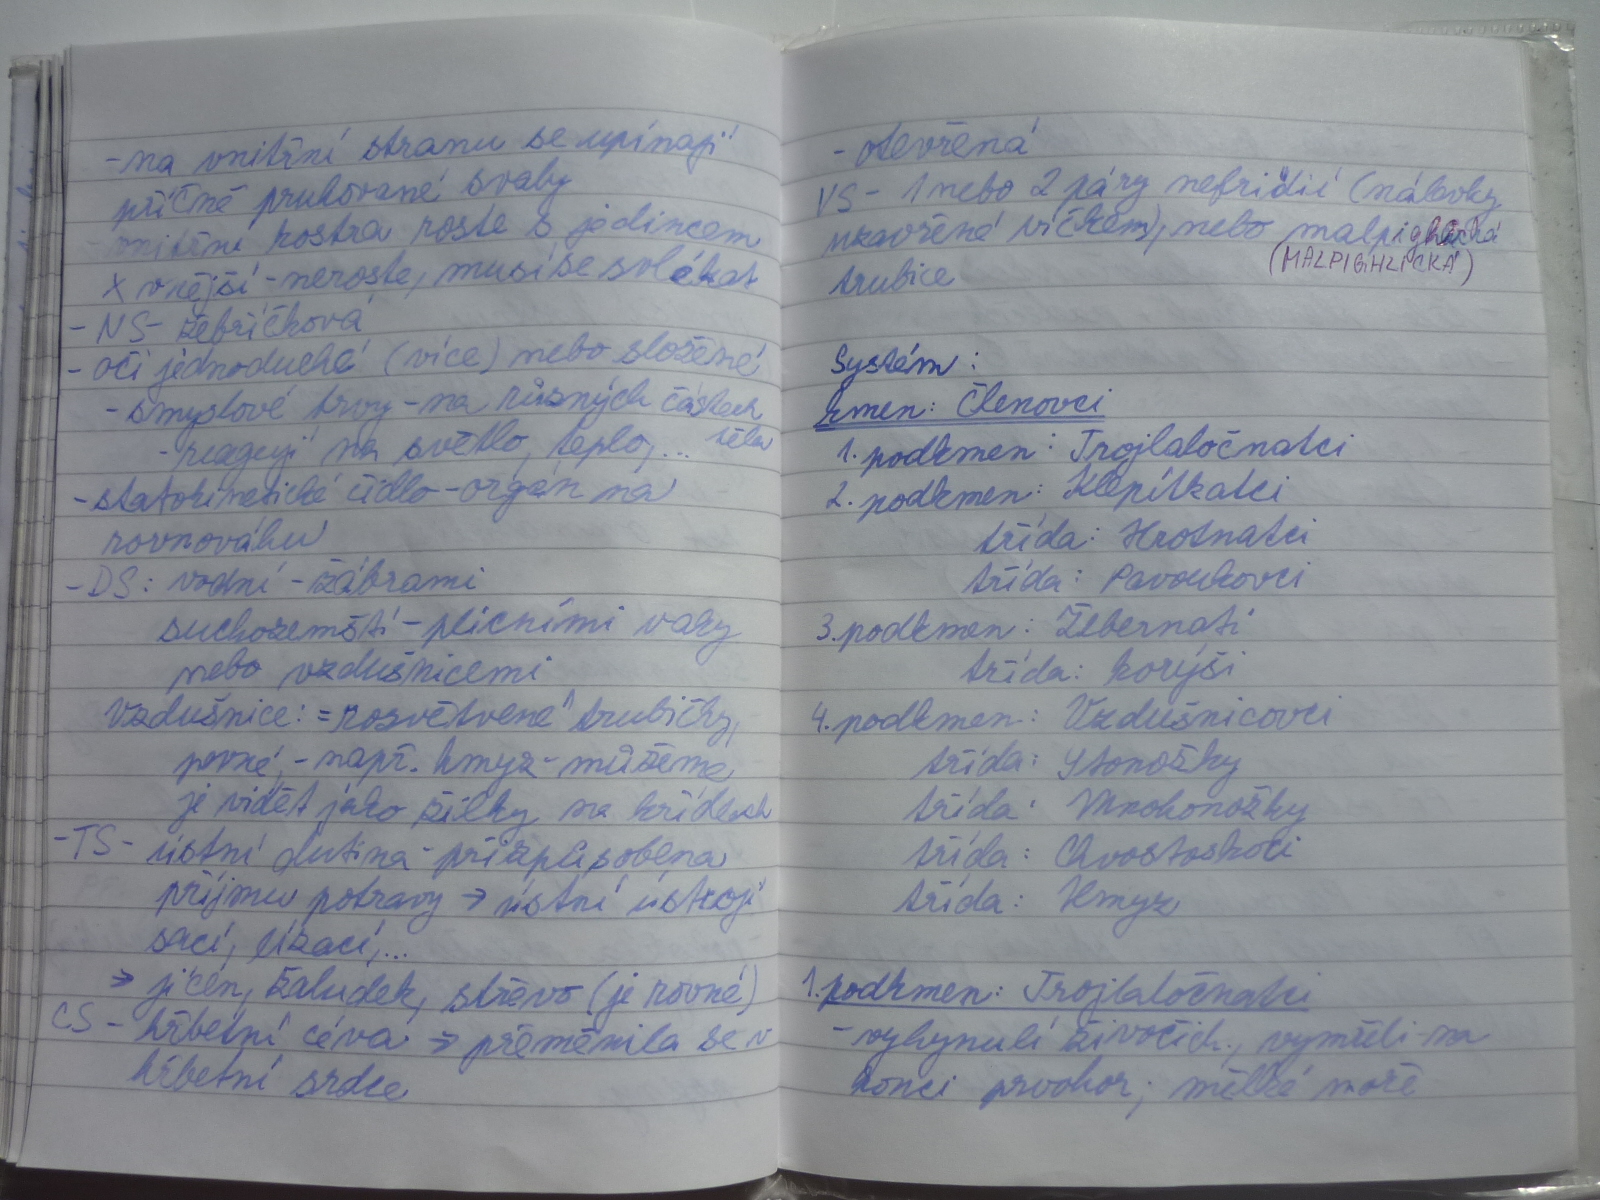 - na vnitřní stranu se upínají
příčně pruhované svaly
- vnitřní kostra roste s jedincem
x vnější - neroste, musí se svlékat
- NS - žebříčková
- oči jednoduché (více) nebo složené
- smyslové brvy - na různých částech
těla
- reagují na světlo, teplo, ...
- statokinetické čidlo - orgán na
rovnováhu
- DS: vodní - žábrami
suchozemští - plicními vaky
nebo vzdušnicemi
Vzdušnice: = rozvětvené trubičky,
pevné, - např. hmyz - můžeme
je vidět jako žilky na křídlech
- TS - ústní dutina - přizpůsobena
příjmu potravy → ústní ústrojí
sací, lízací, ...
→ jícen, žaludek, střevo (je rovné)
CS - hřbetní céva → přeměnila se v
hřbetní srdce
- otevřená
VS - 1 nebo 2 páry nefridií (nálevky
uzavřené víčkem), nebo
(MALPIGHLICKÁ)
trubice
Systém:
kmen: Členovci
1. podkmen: Trojlaločnatci
2. podkmen: Klepítkatci
třída: Hrotnatci
třída: Pavoukovci
3. podkmen: Žebernatí
třída: korýši
4. podkmen: Vzdušnicovci
třída: Stonožky
třída: Mnohonožky
třída: Chvostoskoci
třída: Hmyz
1. podkmen: Trojlaločnatci
- vyhynulí živočich., vymřeli na
konci prvohor; mělké moře